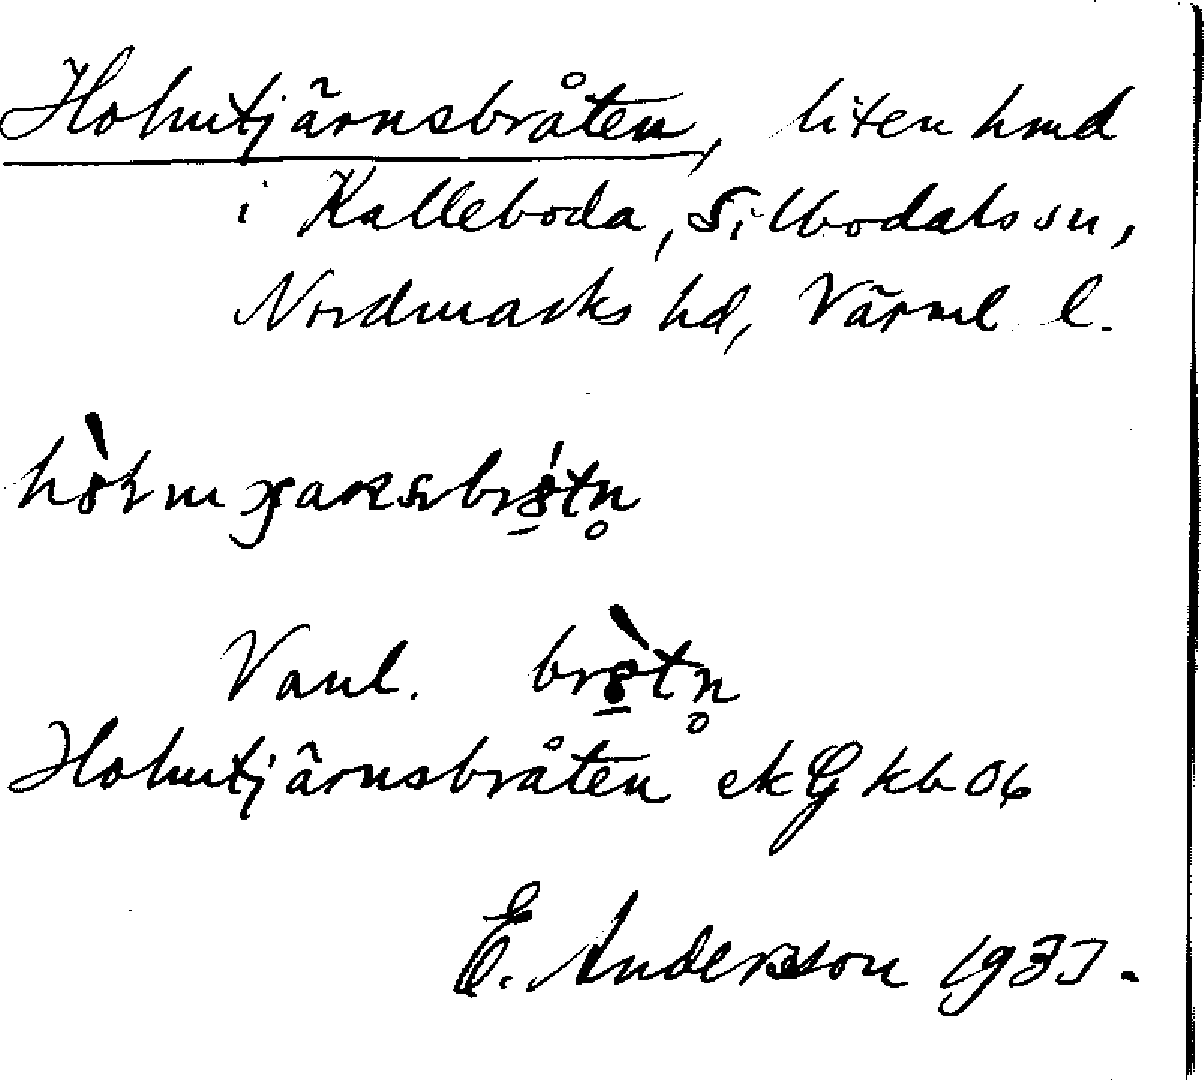 Holmtjärnsbråten, liten hmd
i Kalleboda, Silbodals sn,
Nordmarks hd, Värml l.
Vanl.
Holmtjärnsbråten ekG kb 06
E. Anderson 1937.